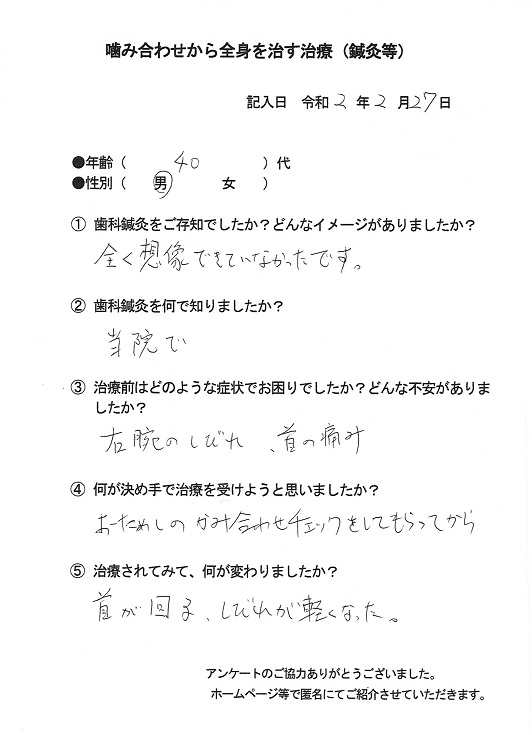 噛み合わせから全身を治す治療（鍼灸等）
記入日 令和 2 年 2 月 27 日
●年齢（ 40 ）代
●性別（ 男 女 ）
① 歯科鍼灸をご存知でしたか？どんなイメージがありましたか？
全く想像できていなかったです。
② 歯科鍼灸を何で知りましたか？
当院で
③ 治療前はどのような症状でお困りでしたか？どんな不安がありま
したか？
右腕のしびれ、首の痛み
④ 何が決め手で治療を受けようと思いましたか？
おーためしのかみ合わせチェックをしてもらってから
⑤ 治療されてみて、何が変わりましたか？
首が回る、しびれが軽くなった。
アンケートのご協力ありがとうございました。
ホームページ等で匿名にてご紹介させていただきます。